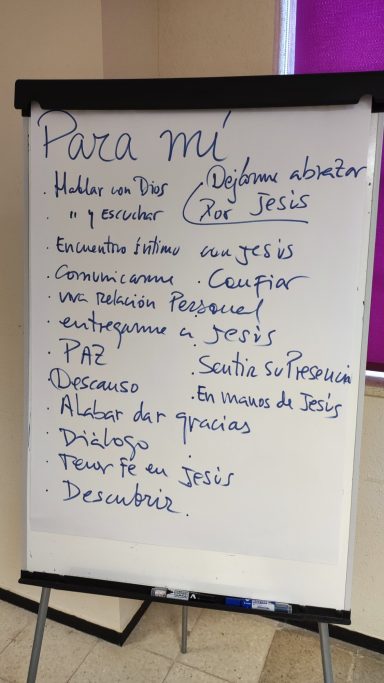 Para mí
. Hablar con Dios
. " y Escuchar
. Dejarme abrazar
por Jesús
. Encuentro íntimo con Jesús
. Comunicarme . Confiar
. una relación Personal
. entregarme a Jesús
. PAZ
. Sentir su Presencia
. Descanso
. En manos de Jesús
. Alabar dar gracias
. Diálogo
. Tener Fe en Jesús
. Descubrir.